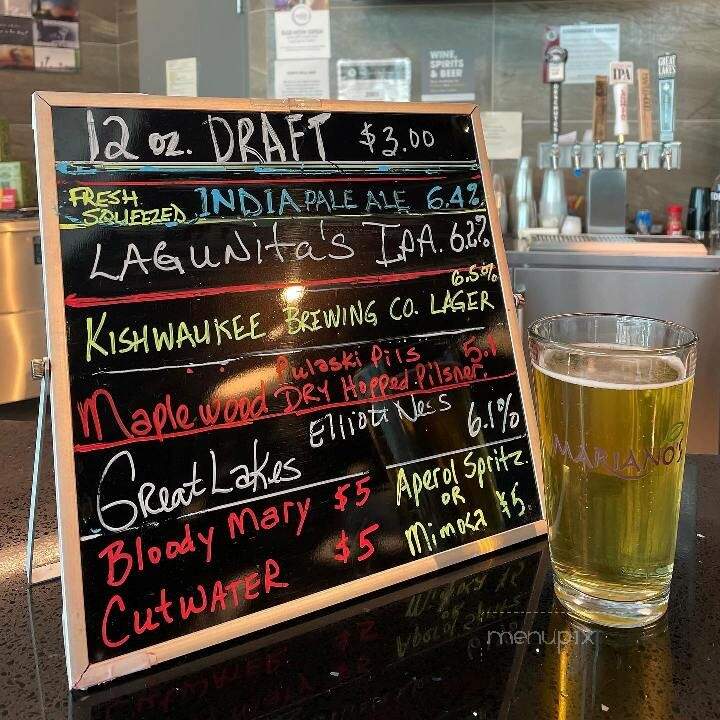 12 oz. DRAFT $3.00
FRESH SQUEEZED INDIA PALE ALE 6.4%
LAGUNita's IPA. 6.2%
6.5%
KISHWAUKEE BREWING CO. LAGER
Pulaski Pils 5.1
Maplewood DRY Hopped Pilsner.
Elliott Ness
Great Lakes 6.1%
Bloody Mary $5
Aperol Spritz
OR
Mimosa $5
CutWATER $5
MARIANO'S
WINE,
SPIRITS
& BEER
IPA
GREAT
LAKES
menupix